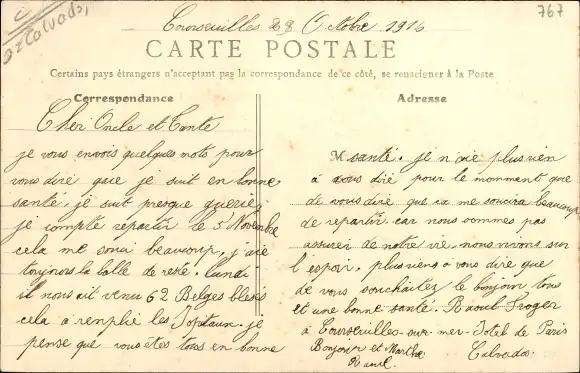 Calvados,
767
Courseuilles 28 Octobre 1916
CARTE POSTALE
Certains pays étrangers n'acceptant pas la correspondance de ce côté, se renseigner à la Poste
Correspondance
Cher Oncle et Tante
je vous envois quelques mots pour
vous dire que je suit en bonne
santé. je suit presque guerie,
je compte repartir le 5 Novembre
cela me sourie beaucoup, j'aie
toujours la balle de reste. lundi
il nous ait venu 62 Belges blessés
cela a remplie les Hopitaux. je
pense que vous êtes tous en bonne
Adresse
M santé. je n'aie plus rien
à vous dire pour le momment que
de vous dire que sa me soucira beaucoup
de repartir, car nous sommes pas
assurer de notre vie, nous vivons sur
l'espoir. plus rien à vous dire que
de vous souhaiter le bonjour tous
et une bonne santé. Raoul Froger
à Courseuilles-sur-mer-Hotel de Paris
Bonjour et Marthe Calvados.
Raoul.